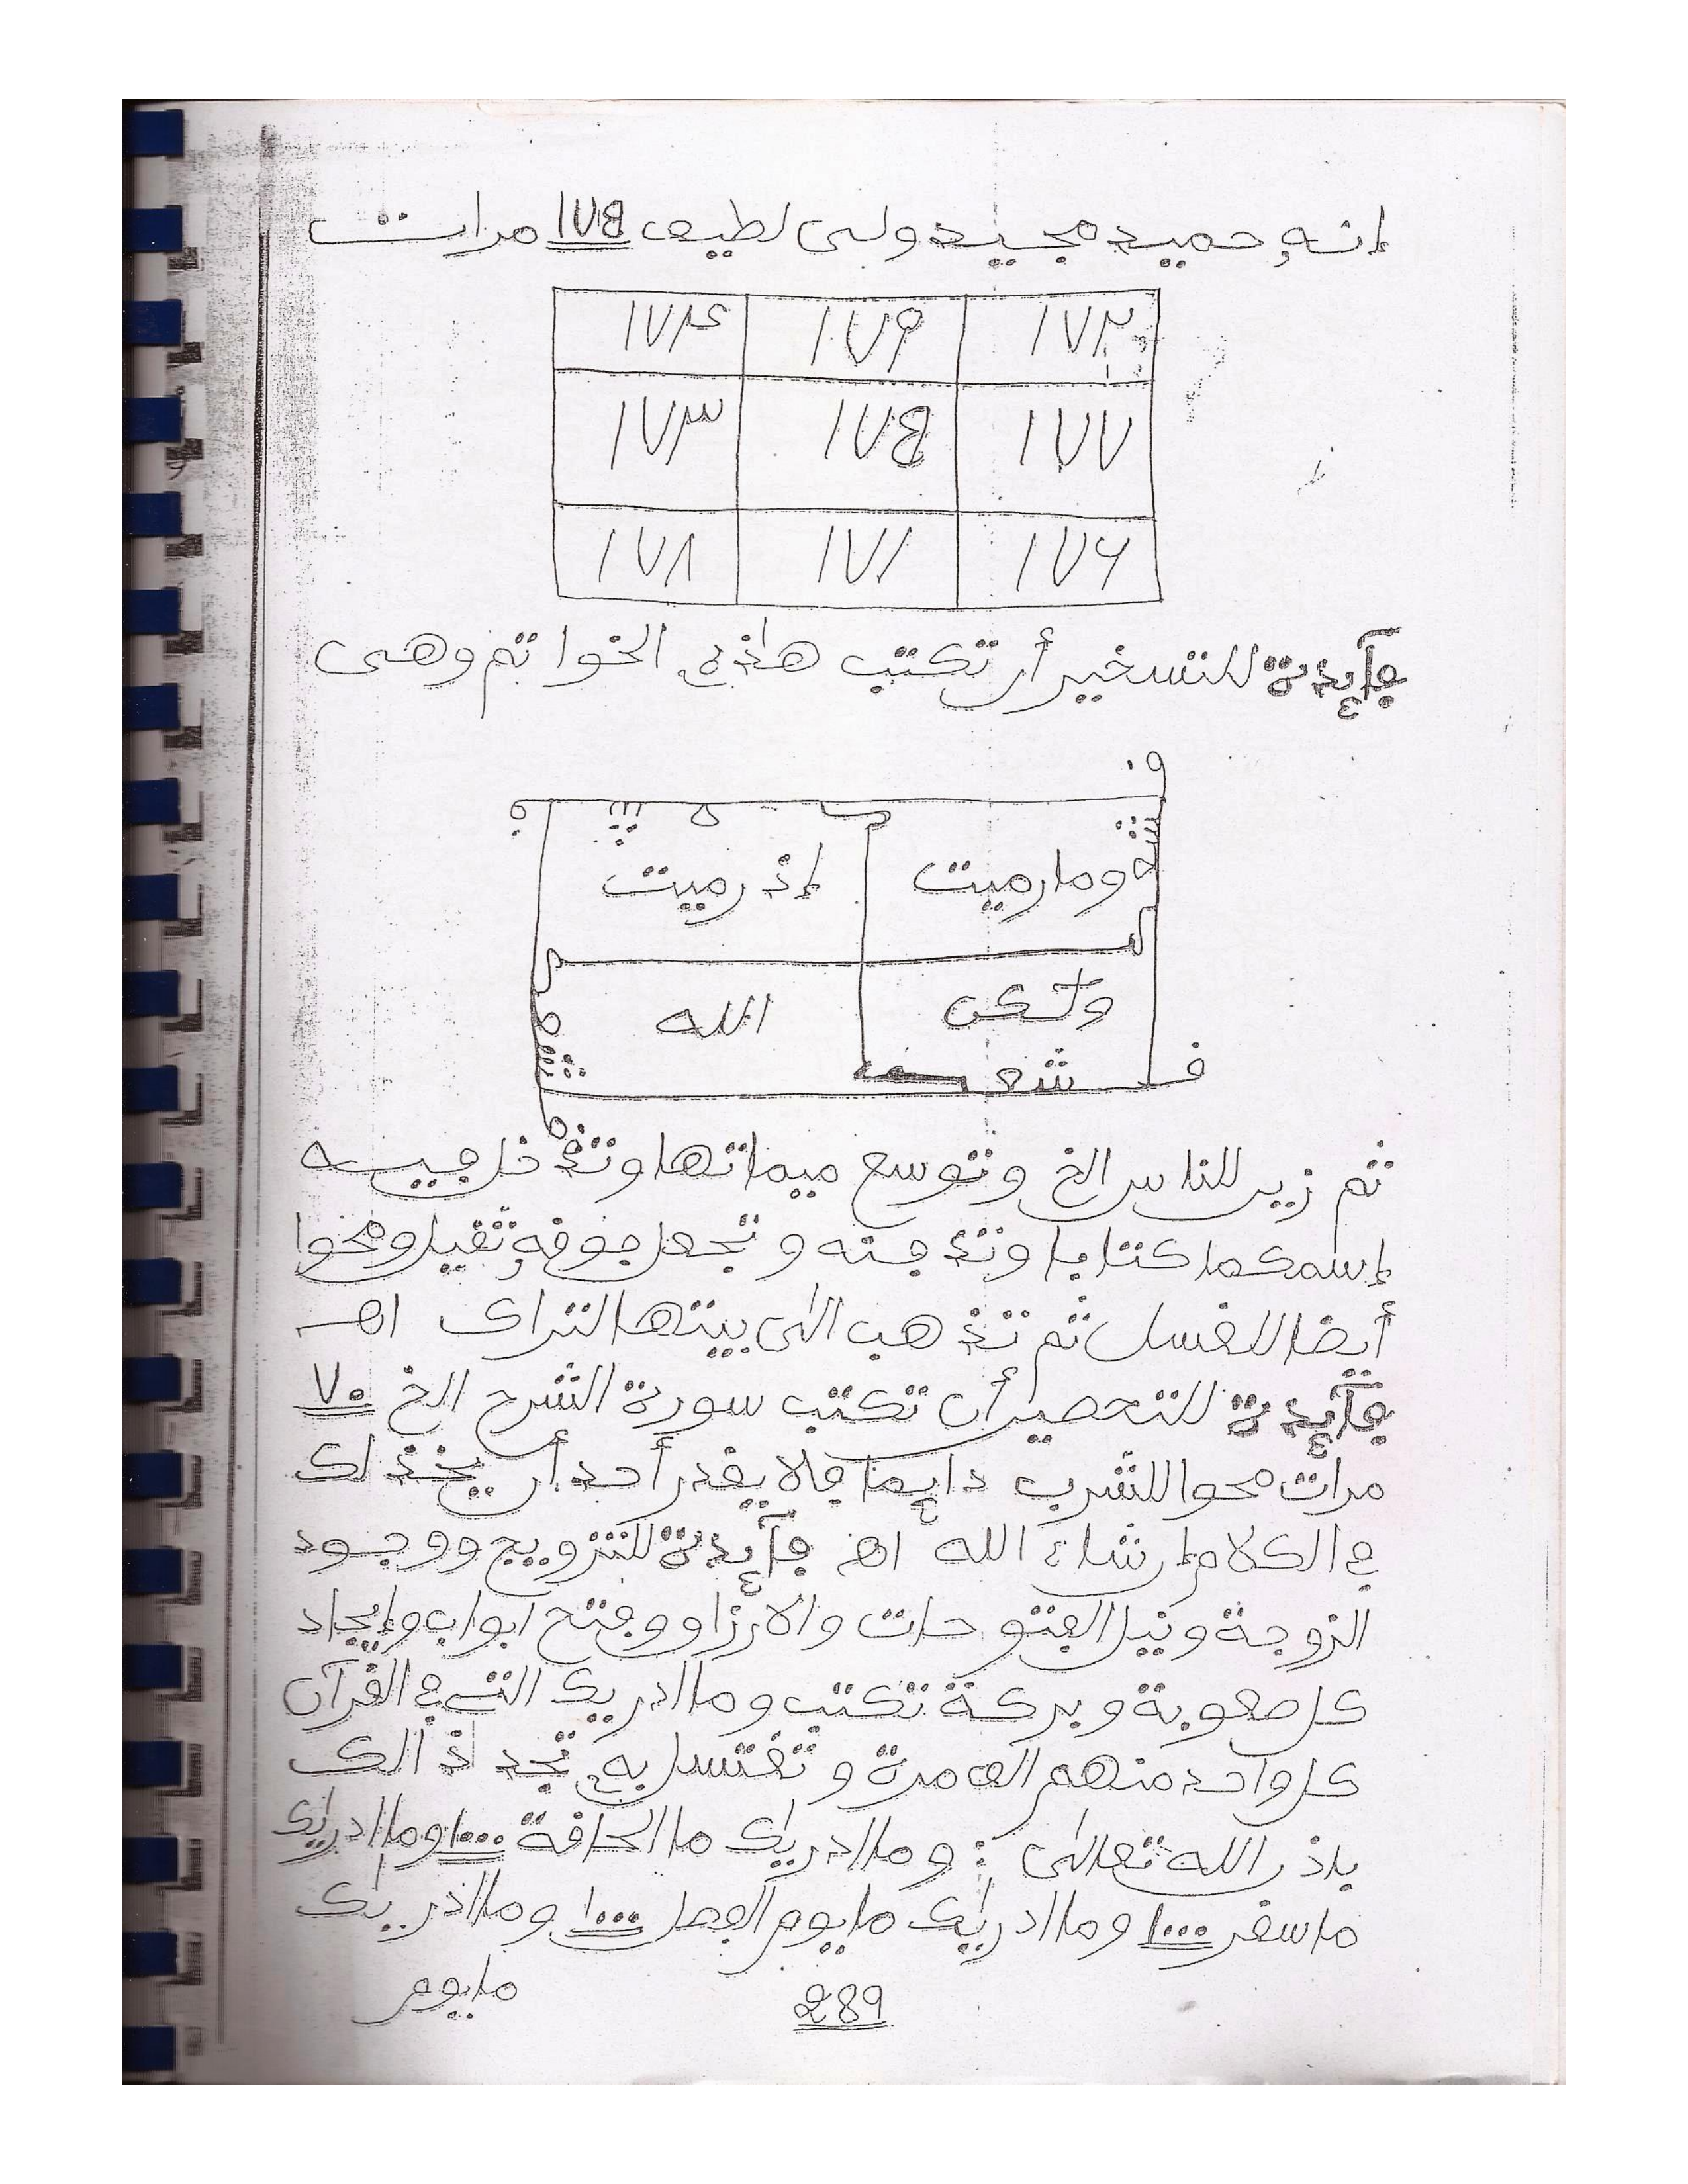 إنه حميد مجيد ولى لطيف ١٧٥ مرات
١٧٢ ١٧٩ ١٧٤
١٧٧ ١٧٥ ١٧٣
١٧٦ ١٧١ ١٧٨
فآئدة للتسخير أن تكتب هاذه الخواتم وهى
وما رميت إذ رميت
ولكن الله
ثم زين للناس الخ وتوسع ميماتها وتدخل فيه
إسمكما كتابا وتدفنه وتجعل فوقه ثقيل ومحوا
أيضا للغسل ثم تذهب الى بيتها لتراك اهـ
فآئدة للتحصين أن تكتب سورة الشرح الخ ٧٠
مرات محوا للشرب دائما فلا يقدر أحد أن
فى الكلام إن شاء الله اهـ فآئدة للتزويج ووجود
الزوجة ونيل الفتوحات والارزاق وفتح ابواب وإيجاد
كل صعوبة وبركة تكتب وما ادريك التى فى القرآن
كل واحد منهم الف مرة وتغتسل به تجد ذالك
باذن الله تعالى : وما ادريك ما الحاقة ١٠٠٠ وما ادريك
ما سقر ١٠٠٠ وما ادريك ما يوم الفصل ١٠٠٠ وما ادريك
ما يوم
289